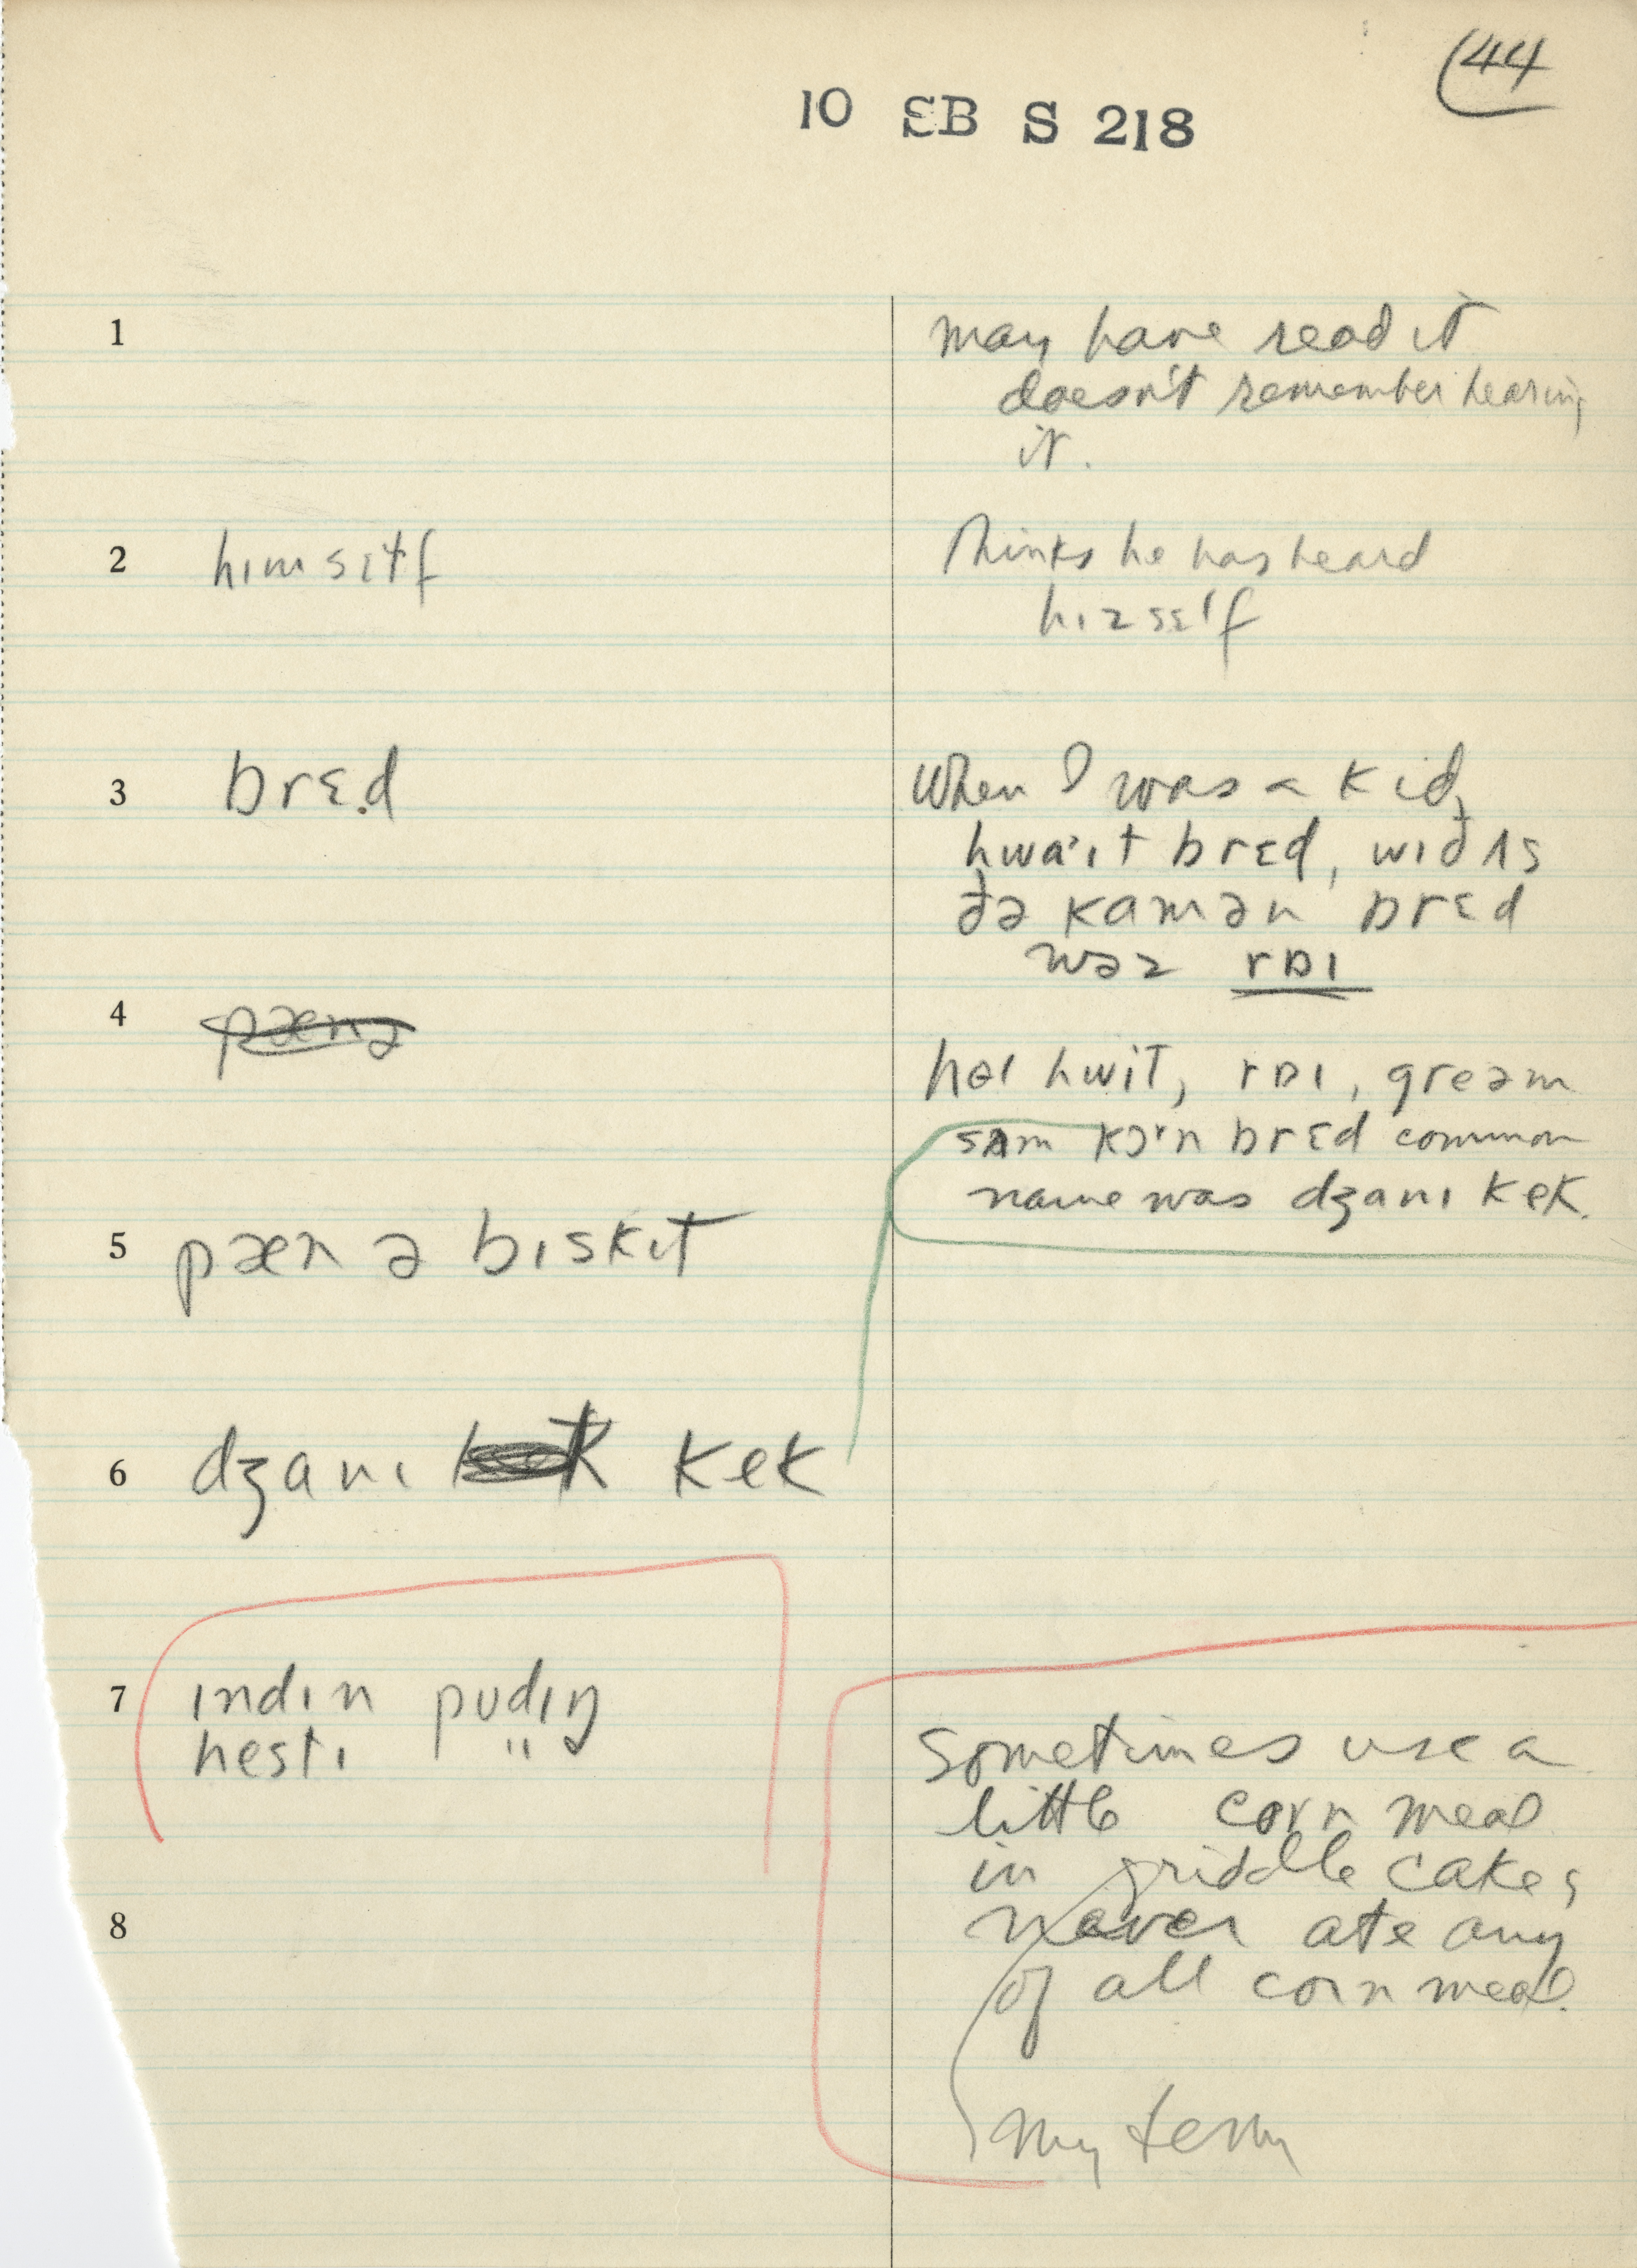 44
10 SB S 218
1
may have read it
doesn't remember hearing
it.
2 hɪmsɛɫf
Thinks he has heard
hɪzsɛlf
3 brɛ.d
When I was a kid,
hwa·ɪt brɛd, wɪð ʌs
ðə kamən brɛd
wəz raɪ
4
hol hwit, raɪ, greəm
sʌm kɔrn brɛd common
name was dʒanɪ kek.
5 pæn ə bɪskɪt
6 dʒanɪ kek
7 ɪndɪn pudɪŋ
hestɪ "
Sometimes use a
little corn meal
in griddle cakes
8
never ate any
of all corn meal.
my term